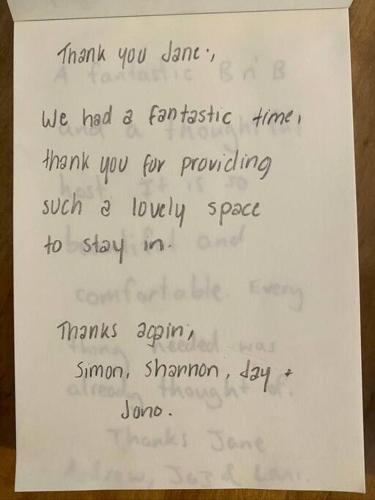 Thank you Jane.,
We had a fantastic time,
thank you for providing
such a lovely space
to stay in.
Thanks again,
Simon, Shannon, Jay +
Jono.
A fantastic B n' B
and a thoughtful
host. It is so
beautiful and
comfortable. Every
thing needed was
already thought of.
Thanks Jane
Andrew, Jaz &